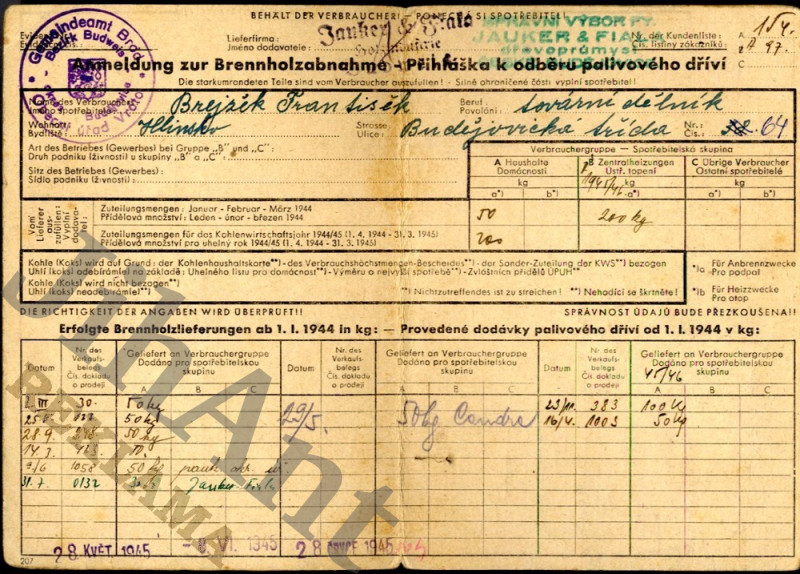 BEHÄLT DER VERBRAUCHER! — PONECHÁ SI SPOTŘEBITEL!
Gemeindeamt Brod
Bezirk Budweis
Lieferfirma:
Jméno dodavatele:
Jauker & Fiala
SPRÁVNÍ VÝBOR FY.
JAUKER & FIALA
dřevoprůmysl
Nr. der Kundenliste:
Čís. listiny zákazníků:
A 97.
Anmeldung zur Brennholzabnahme — Přihláška k odběru palivového dříví
Die starkumrandeten Teile sind vom Verbraucher auszufüllen! — Silně ohraničené části vyplní spotřebitel!
Name des Verbrauchers:
Jméno spotřebitele:
Brejžek František
Beruf:
Povolání:
tovární dělník
Wohnort:
Bydliště:
Hlinsko
Strasse:
Ulice:
Budějovická třída
Nr.:
Čís.:
64
Art des Betriebes (Gewerbes) bei Gruppe „B" und „C":
Druh podniku (živnosti) u skupiny „B" a „C":
Sitz des Betriebes (Gewerbes):
Sídlo podniku (živnosti):
Verbrauchergruppe — Spotřebitelská skupina
A Haushalte
Domácnosti
B Zentralheizungen
Ústř. topení
1945/46
C Übrige Verbraucher
Ostatní spotřebitelé
kg kg kg
a*) b*) a*) b*) a*) b*)
Vom Lieferer auszufüllen:
Vyplní dodavatel:
Zuteilungsmengen: Januar - Februar - März 1944
Přídělová množství: Leden - únor - březen 1944
50
200 kg
Zuteilungsmengen für das Kohlenwirtschaftsjahr 1944/45 (1. 4. 1944 - 31. 3. 1945)
Přídělová množství pro uhelný rok 1944/45 (1. 4. 1944 - 31. 3. 1945)
200
Kohle (Koks) wird auf Grund: der Kohlenhaushaltskarte**) - des Verbrauchshöchstmengen-Bescheides**) - der Sonder-Zuteilung der KWS**) bezogen
Uhlí (koks) odebírám(e) na základě: Uhelného listu pro domácnost**) - Výměru o nejvyšší spotřebě**) - Zvláštních přídělů ÚPUH**)
Kohle (Koks) wird nicht bezogen**)
Uhlí (koks) neodebírám(e)**)
**) Nichtzutreffendes ist zu streichen! **) Nehodící se škrtněte!
*)a Für Anbrennzwecke
Pro podpal
*)b Für Heizzwecke
Pro otop
DIE RICHTIGKEIT DER ANGABEN WIRD ÜBERPRÜFT!
SPRÁVNOST ÚDAJŮ BUDE PŘEZKOUŠENA!
Erfolgte Brennholzlieferungen ab 1. I. 1944 in kg: — Provedené dodávky palivového dříví od 1. I. 1944 v kg:
Datum
Nr. des Verkaufsbelegs
Čís. dokladu o prodeji
Geliefert an Verbrauchergruppe
Dodáno pro spotřebitelskou skupinu
A B C
Datum
Nr. des Verkaufsbelegs
Čís. dokladu o prodeji
Geliefert an Verbrauchergruppe
Dodáno pro spotřebitelskou skupinu
A B C
Datum
Nr. des Verkaufsbelegs
Čís. dokladu o prodeji
Geliefert an Verbrauchergruppe
Dodáno pro spotřebitelskou skupinu
45/46
A B C
III 30. 50 kg 23/11. 383 100 kg
25 50 kg 29/5. 16/4. 1003 50 kg
28.9. 50 kg
9/6 1058 50 kg
31.7. 0132
28 KVĚT 1945
VI. 1945
28 1945
207
JihAnt
REKLAMA